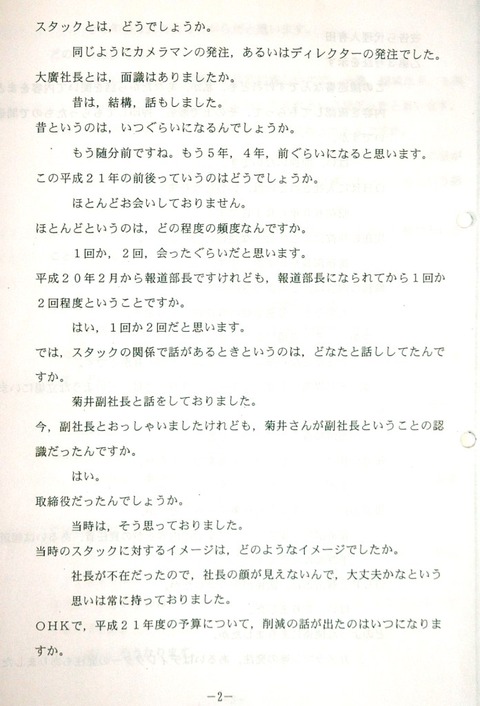 スタックとは，どうでしょうか。
同じようにカメラマンの発注，あるいはディレクターの発注でした。
大廣社長とは，面識はありましたか。
昔は，結構，話もしました。
昔というのは，いつぐらいになるんでしょうか。
もう随分前ですね。もう５年，４年，前ぐらいになると思います。
この平成２１年の前後っていうのはどうでしょうか。
ほとんどお会いしておりません。
ほとんどというのは，どの程度の頻度なんですか。
１回か，２回，会ったぐらいだと思います。
平成２０年２月から報道部長ですけれども，報道部長になられてから１回か
２回程度ということですか。
はい，１回か２回だと思います。
では，スタックの関係で話があるときというのは，どなたと話ししてたんで
すか。
菊井副社長と話をしておりました。
今，副社長とおっしゃいましたけれども，菊井さんが副社長ということの認
識だったんですか。
はい。
取締役だったんでしょうか。
当時は，そう思っておりました。
当時のスタックに対するイメージは，どのようなイメージでしたか。
社長が不在だったので，社長の顔が見えないんで，大丈夫かなという
思いは常に持っておりました。
ＯＨＫで，平成２１年度の予算について，削減の話が出たのはいつになりま
すか。
－2－